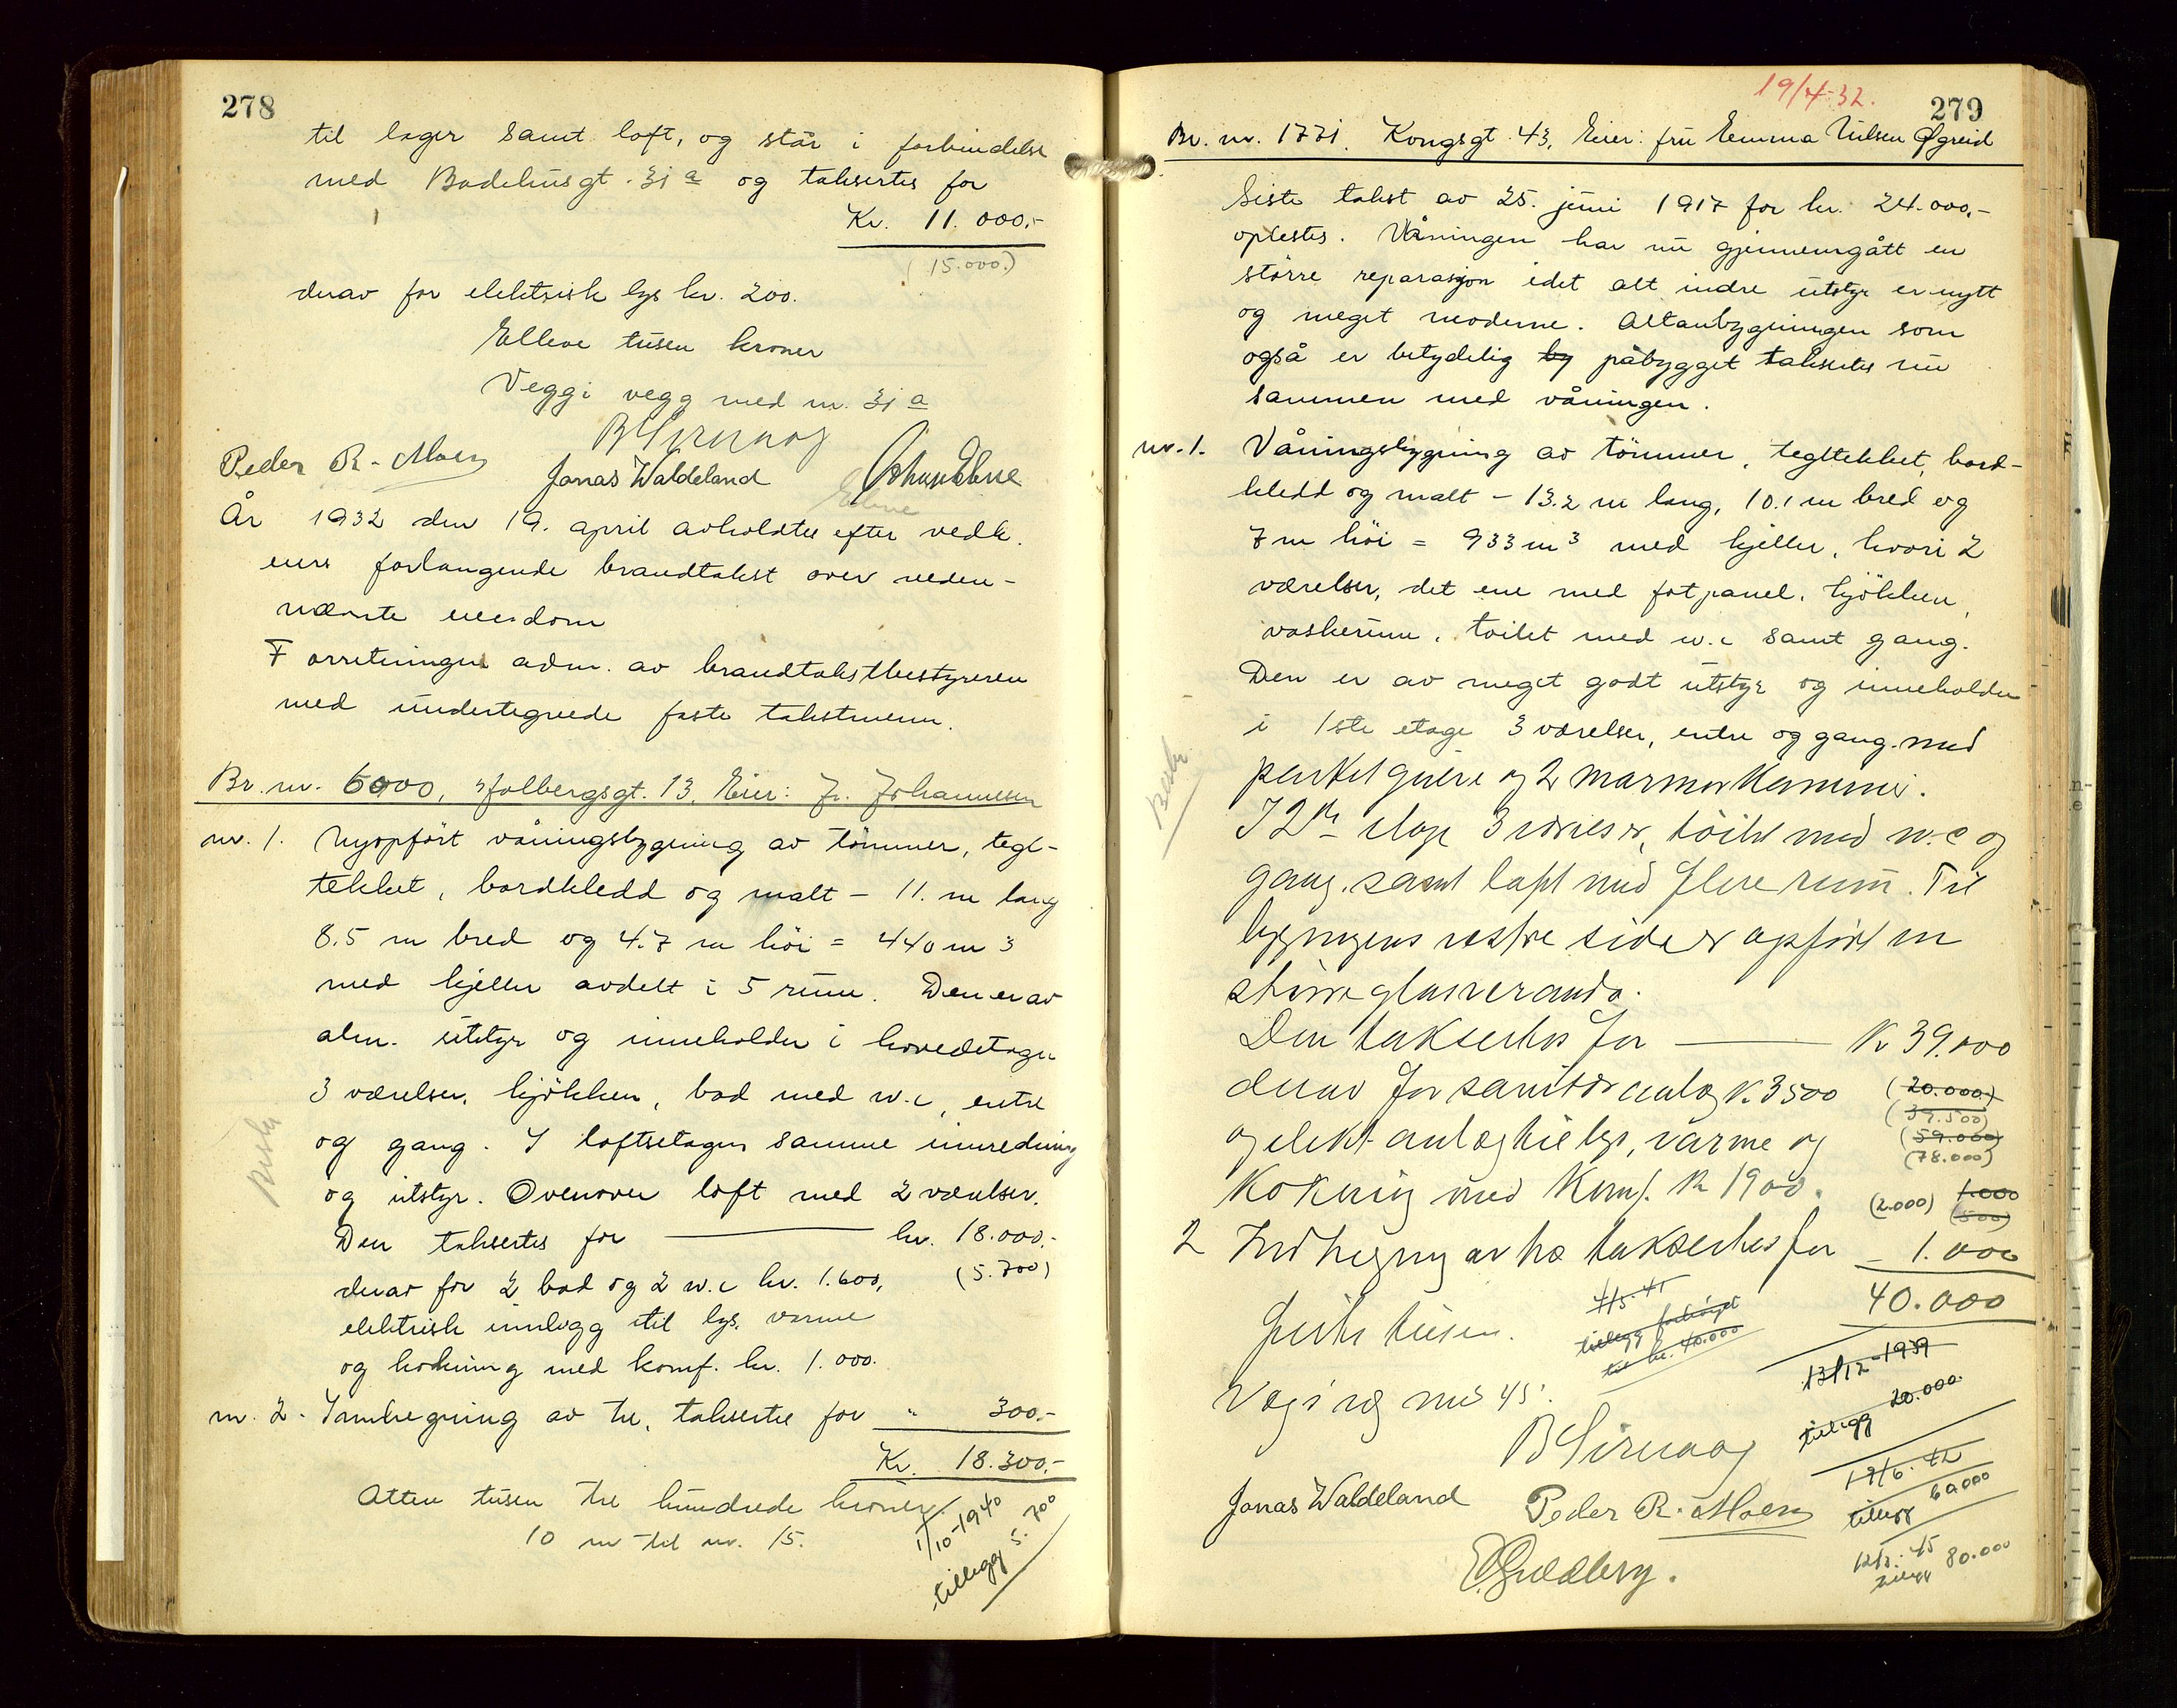 278
til lager samt loft, og står i forbindelse
med Badehusgt. 31 a og taksertes for
Kr. 11.000,-
(15.000.)
derav for elektrisk lys kr. 200.
Elleve tusen kroner
Vegg i vegg med nr. 31 a
Peder R. Moen
Jonas Waldeland
År 1932 den 19. april avholdtes efter vedk.
eiers forlangende brandtakst over neden-
nævnte eiendom
Forretningen adm. av brandtakstbestyreren
med undertegnede faste takstmenn.
Br. nr. 6000, Holbergsgt. 13, Eier: Johannesen
nr. 1. Nyopført våningsbygning av tömmer, tegl-
tekket, bordkledd og malt - 11. m lang
8.5 m bred og 4.7 m höi = 440 m3
med kjeller avdelt i 5 rum. Den er av
alm. utstyr og inneholder i hovedetagen
3 værelser, kjökken, bad med w.c, entre
og gang. I loftsetagen samme innredning
og utstyr. Ovenover loft med 2 værelser.
Den taksertes for kr. 18.000,-
derav for 2 bad og 2 w.c kr. 1.600,
(5.700)
elektrisk innlegg til lys, varme
og kokning med komf. kr. 1.000.
nr. 2. Innhegning av tre, taksertes for " 300.-
Kr. 18.300,-
Atten tusen tre hundrede kroner
10 m til nr. 15.
1/10-1940
tillegg 5.700
19/4-32.
279
Br. nr. 1771. Kongsgt. 43, Eier: fru Emma Nilsen Øgreid
Siste takst av 25. juni 1917 for kr. 24.000,-
oplestes. Våningen har nu gjennemgått en
större reparasjon idet alt indre utstyr er nytt
og meget moderne. Altanbygningen som
også er betydelig by påbygget taksertes nu
sammen med våningen.
nr. 1. Våningsbygning av tömmer, tegltekket, bord-
kledd og malt - 13.2 m lang, 10.1 m bred og
7 m höi = 933 m3 med kjeller, hvori 2
værelser, det ene med fotpanel, kjökken,
vaskerum, toilet med w.c samt gang.
Den er av meget godt utstyr og inneholder
i 1ste etage 3 værelser, entre og gang med
parketgulv og 2 marmor kaminer.
I 2en etage 3 værelser, toilet med w.c og
gang, samt loft med flere rum. Til
bygningens vestre side er opført en
större glasveranda.
Den taksertes for K 39.000
derav for sanitær anlæg K. 3500
(20.000)
(39.500)
og elekt. anlæg til lys, varme og
(59.000)
(78.000)
Kokning med Komf. K 1900.
(2.000) 1.000
(500)
2 Indhegning av træ taksertes for - 1.000
40.000
Førti tusen.
4/5-41
tillegg forhöiet
til kr. 40.000
Væg i væg med 45.
13/12-1939
tillegg 20.000
19/6-42
tillegg 60.000
12/3-45
tillegg 80.000
Jonas Waldeland
Peder R. Moen